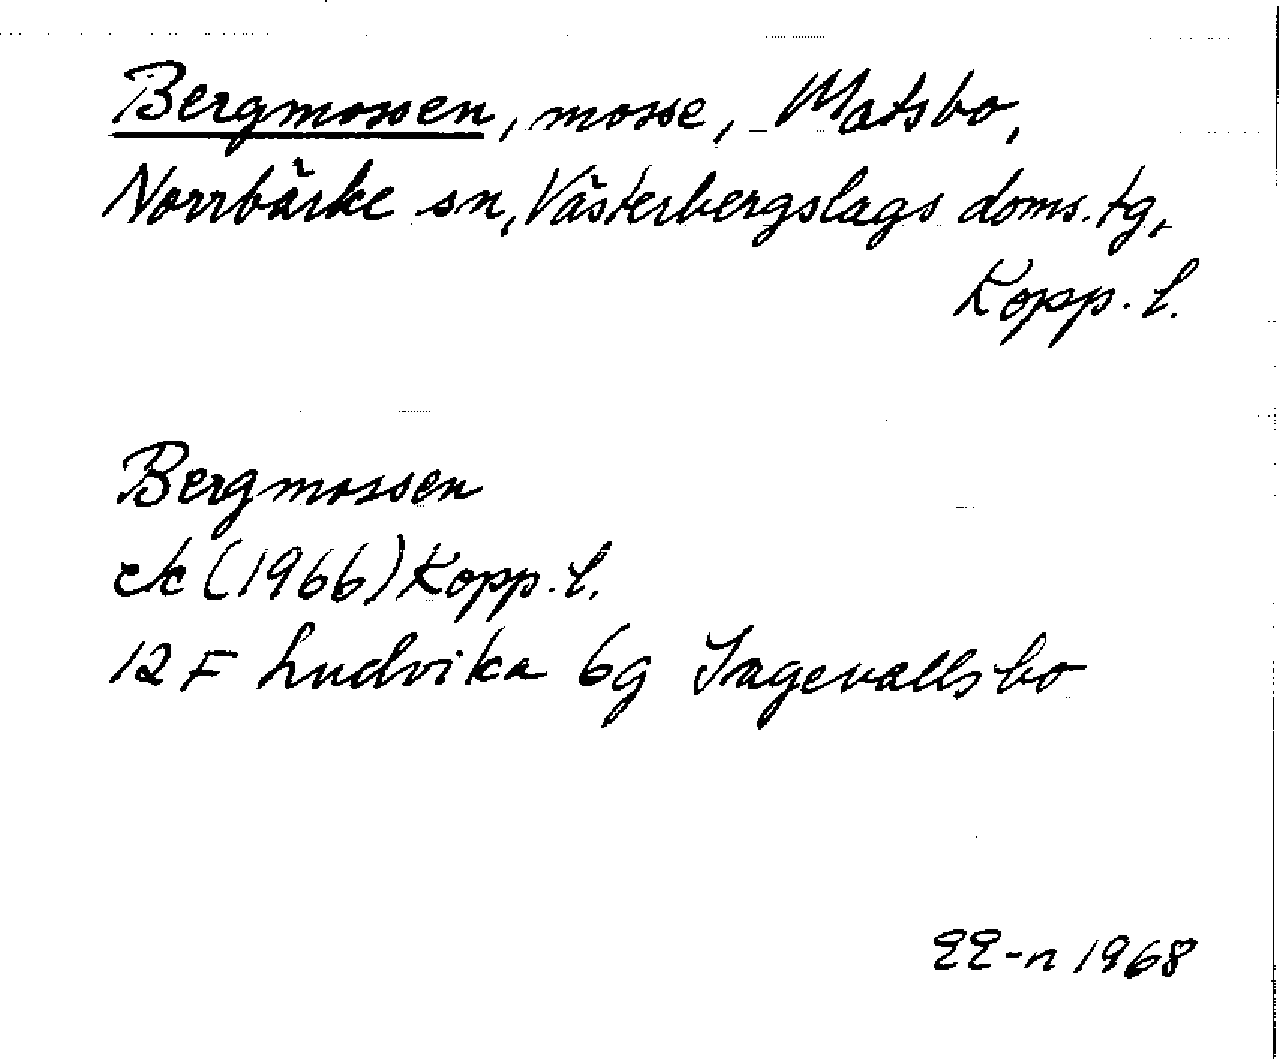 Bergmossen, mosse, Matsbo,
Norrbärke sn, Västerbergslags doms.tg,
Kopp. l.
Bergmossen
ek (1966) Kopp. l.
12 F Ludvika 6g Jagevallsbo
EE-n 1968